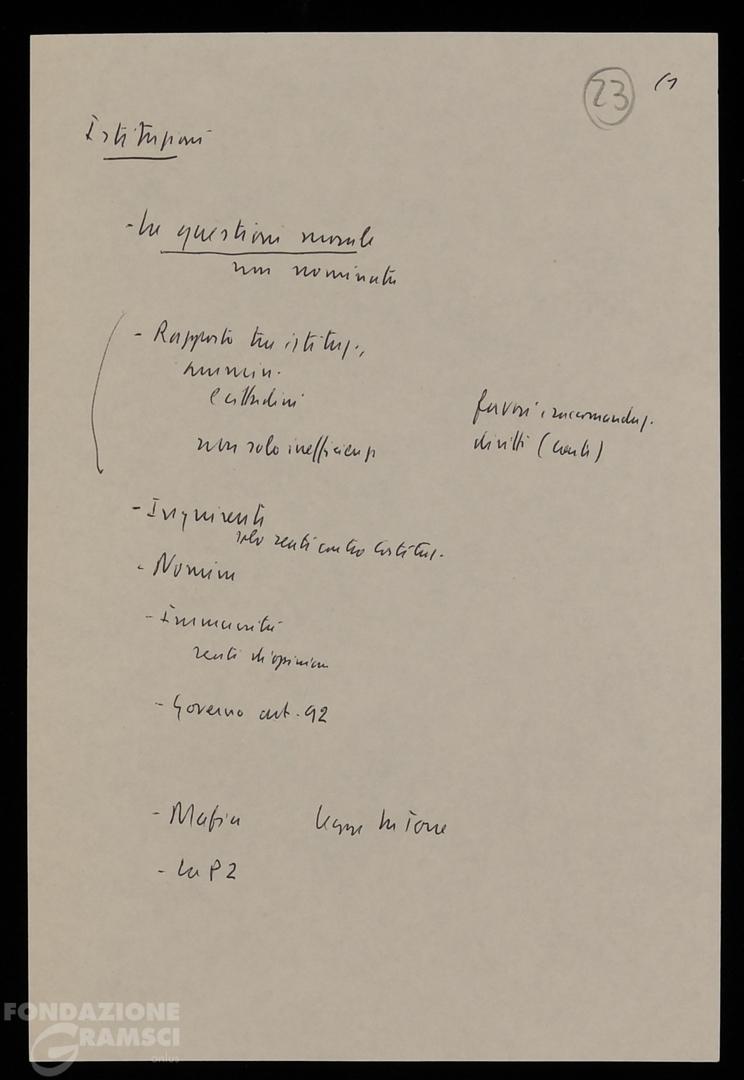 23
Istituzioni
- La questione morale
non nominata
- Rapporto tra istituz.,
ammin.
e cittadini
favori, raccomandaz.
non solo inefficienz
diritti
- Inquirente
solo reati contro Costituz.
- Nomine
- Immunità
reati di opinione
- Governo art. 92
- Mafia legge La Torre
- La P2
FONDAZIONE
GRAMSCI
onlus